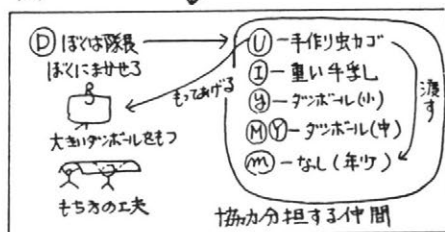 Ⓓ ぼくは隊長
ぼくにまかせろ
大きいダンボールをもつ
もち方の工夫
もってあげる
Ⓤ－手作り虫カゴ
Ⓘ－重い牛乳
ⓨ－ダンボール(小)
ⓂⓎ－ダンボール(中)
ⓜ－なし(年少)
渡す
協力分担する仲間